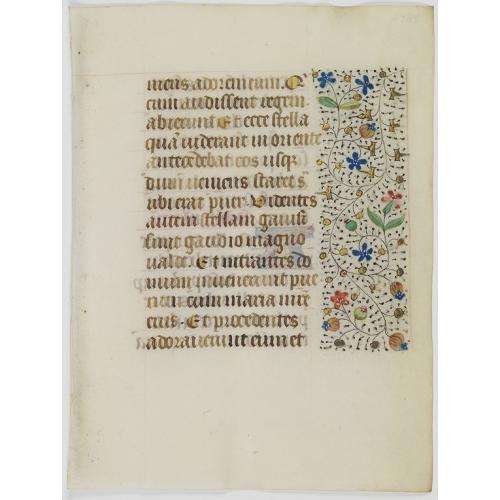 mens adorem eum. Q̄
cum audissent regem
abierunt Et ecce stella
quā viderant in oriente
antecedebat eos usqꝫ
dum veniens staret s̄
ubi erat puer Videntes
autem stellam gavisi
sunt gaudio magno
valde. Et intrantes do
mum invenerunt pue
rum cum maria mr̄e
eius. Et procedentes
adoraverunt eum et